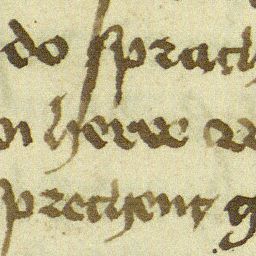 do sprach
herre
sprechent g